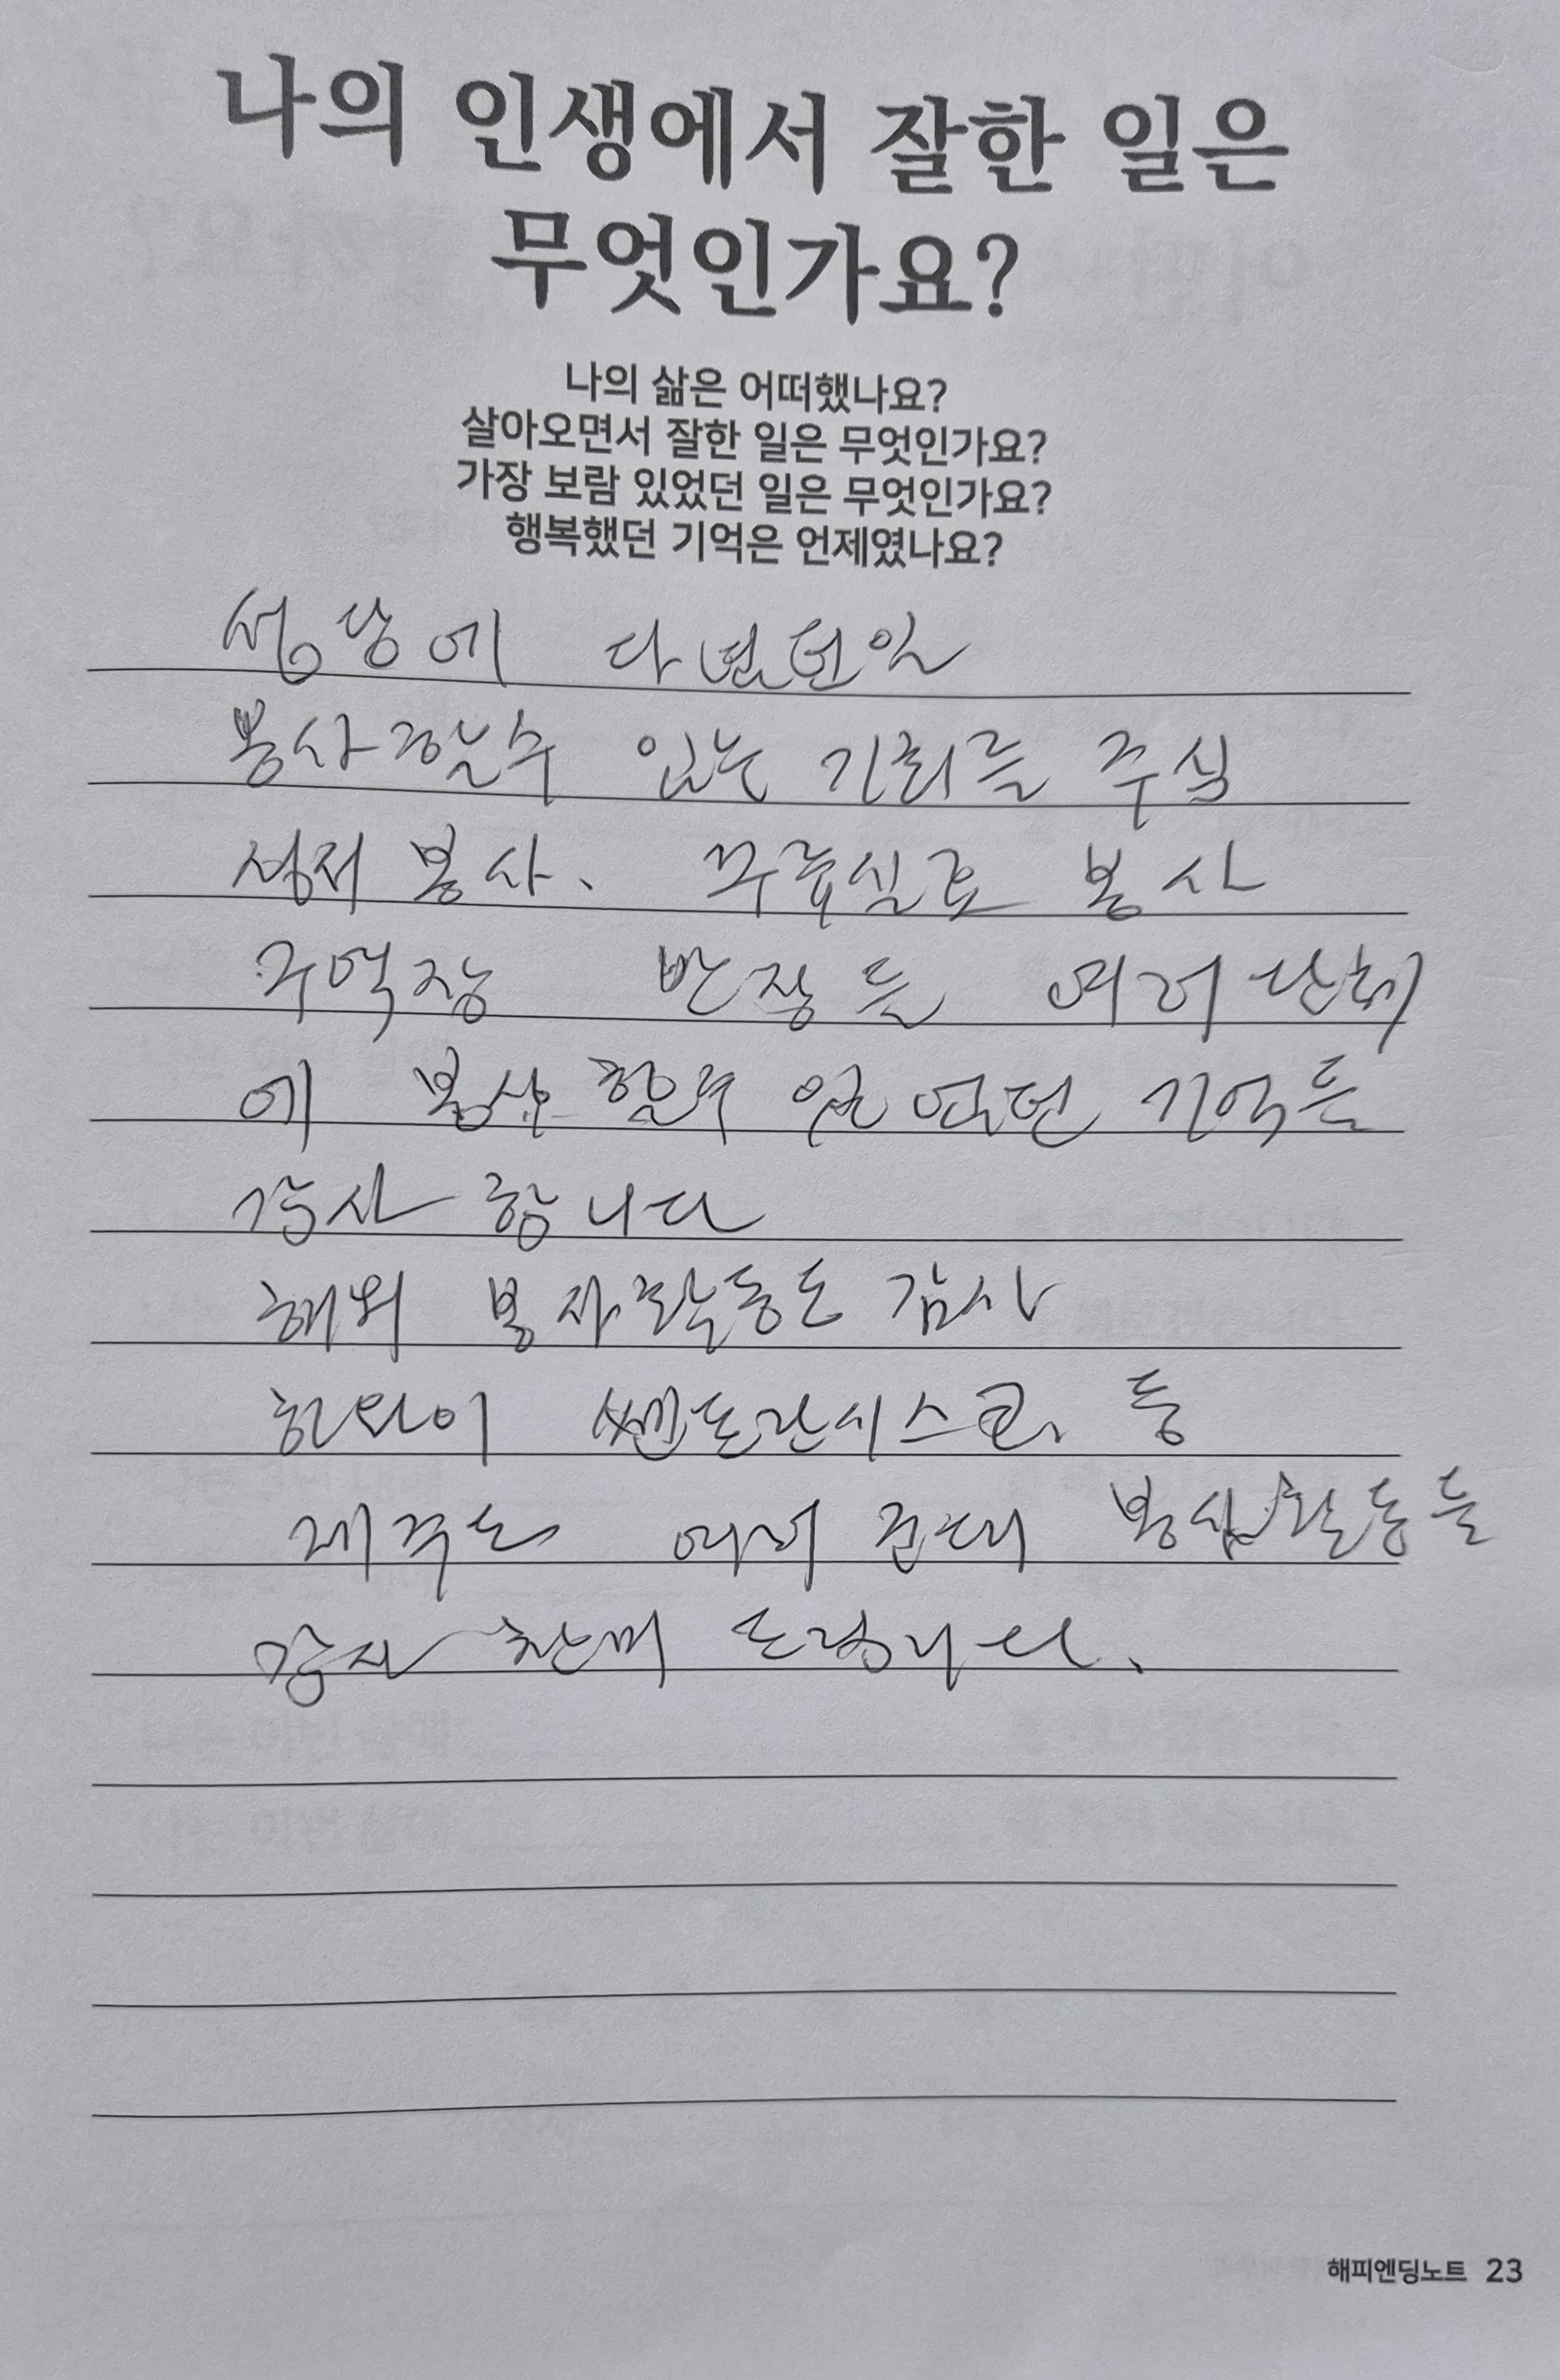 나의 인생에서 잘한 일은
무엇인가요?
나의 삶은 어떠했나요?
살아오면서 잘한 일은 무엇인가요?
가장 보람 있었던 일은 무엇인가요?
행복했던 기억은 언제였나요?
성당에 다녔던일
봉사할수 있는 기회를 주심
성저 봉사. 봉사
구역장 반장 등 여러단체
에 봉사 할수 있 었던 기억들
감사 합니다
해외 봉사활동도 감사
하와이 쎈프란시스코, 등
제주도 여러 군데 봉사활동들
감사 찬미 드립니다.
해피엔딩노트 23